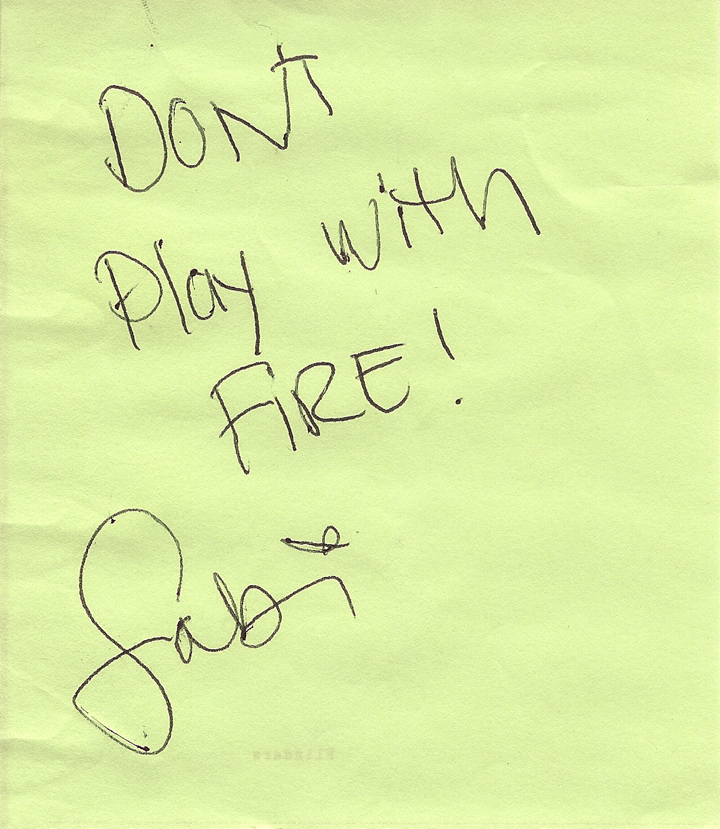 DON'T
Play with
FIRE!
Gabi